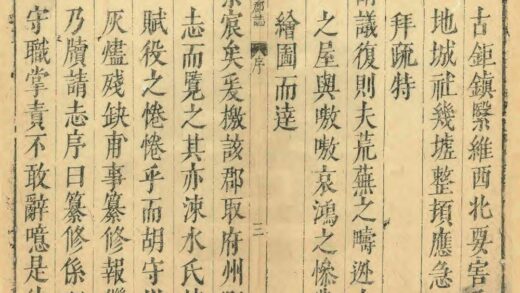 古鉅鎮緊維西北要害
地城社幾墟整頓應急
拜疏特
議復則夫荒蕪之疇迯
之屋與嗷嗷哀鴻之慘
繪圖而達
郡誌 序 三
宸矣爰檄該郡取府州
志而覽之其亦涑水氏
賦役之惓惓乎而胡守
灰燼殘缺甫事纂修報
乃牘請志序曰纂修係
守職掌責不敢辭噫是